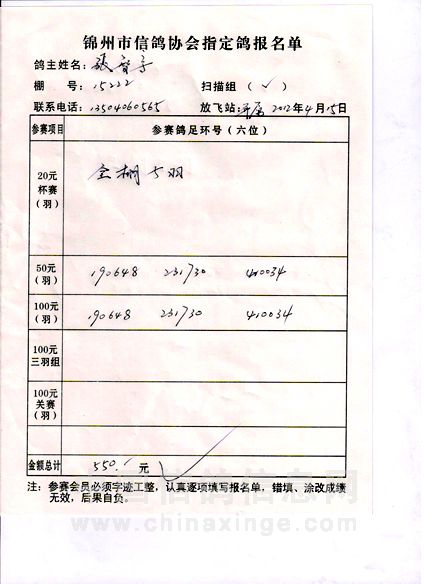 锦州市信鸽协会指定鸽报名单
鸽主姓名：张
棚 号：15222 扫描组（✓）
联系电话：13504060565 放飞站：开原 2012年4月15日
参赛项目 参赛鸽足环号（六位）
20元
杯赛
（羽）
全棚5羽
50元
（羽）
190648 231730 410034
100元
（羽）
190648 231730 410034
100元
三羽组
100元
关赛
（羽）
金额总计 550.- 元
注：参赛会员必须字迹工整，认真逐项填写报名单，错填、涂改成绩
无效，后果自负。
中国信鸽信息网
www.chinaxinge.com